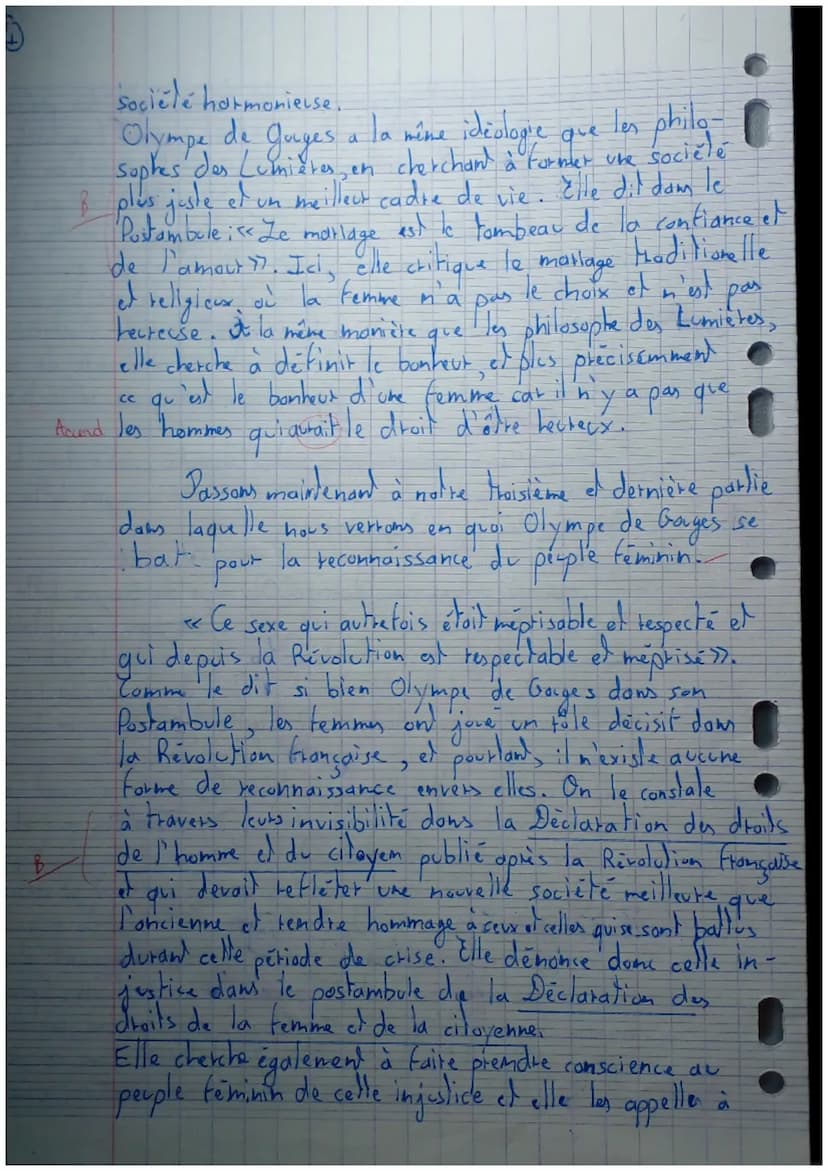 société harmonieuse.
Olympe de Gouges a la même idéologie que les philo-
sophes des Lumières, en cherchant à former une société
B plus juste et un meilleur cadre de vie. Elle dit dans le
Postambule : « Le mariage est le tombeau de la confiance et
de l'amour ». Ici, elle critique le mariage traditionelle
et religieux où la femme n'a pas le choix et n'est pas
heureuse. A la même manière que les philosophe des Lumières,
elle cherche à définir le bonheur, et plus précisemment
ce qu'est le bonheur d'une femme car il n'y a pas que
Accord les hommes qui aurait le droit d'être heureux.
Passons maintenant à notre troisième et dernière partie
dans laquelle nous verrons en quoi Olympe de Gouges se
bat pour la reconnaissance du peuple féminin.
« Ce sexe qui autrefois était méprisable et respecté et
qui depuis la Révolution est respectable et méprisé ».
Comme le dit si bien Olympe de Gouges dans son
Postambule, les femmes ont joué un rôle décisif dans
la Révolution française, et pourtant, il n'existe aucune
forme de reconnaissance envers elles. On le constate
à travers leurs invisibilité dans la Déclaration des droits
B de l'homme et du citoyen publié après la Révolution française
et qui devait refléter une nouvelle société meilleure que
l'ancienne et rendre hommage à ceux et celles qui se sont battus
durant cette période de crise. Elle dénonce donc cette in-
justice dans le postambule de la Déclaration des
droits de la femme et de la citoyenne.
Elle cherche également à faire prendre conscience au
peuple féminin de cette injustice et elle les appelle à